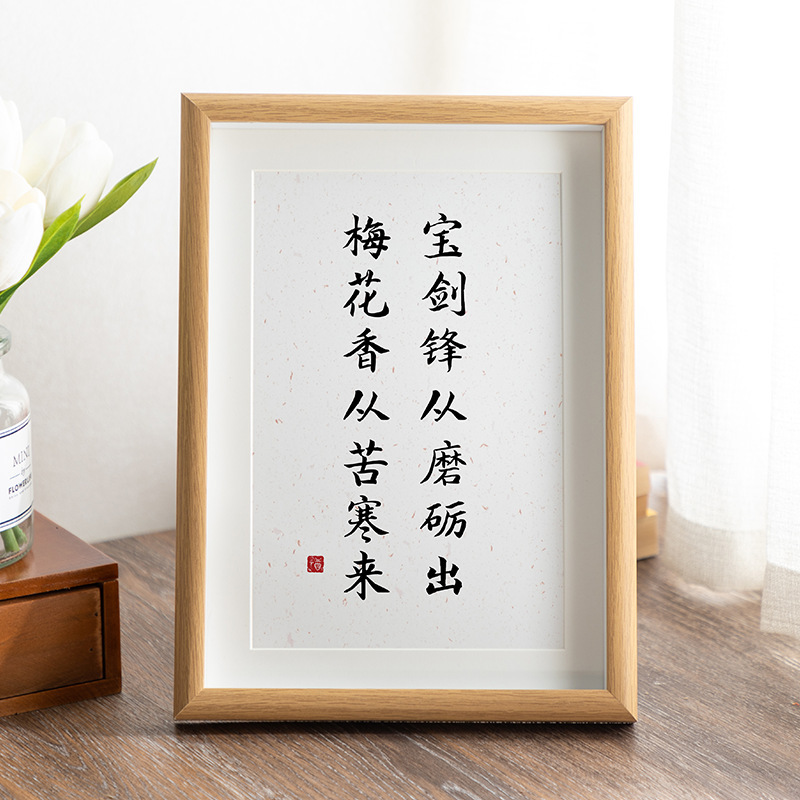 宝剑锋从磨砺出
梅花香从苦寒来